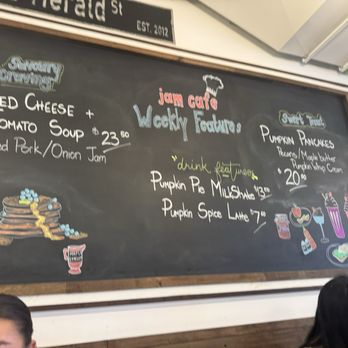 Herald St
EST. 2012
Savoury
Craving
ED CHEESE +
OMATO SOUP $23.50
d Pork/Onion Jam
jam cafe
Weekly Features
"drink features"
Pumpkin Pie Milkshake $13.50
Pumpkin Spice Latte $7.50
Sweet Tooth
Pumpkin Pancakes
Pecans/Maple butter
Pumpkin Whip Cream
$20.50